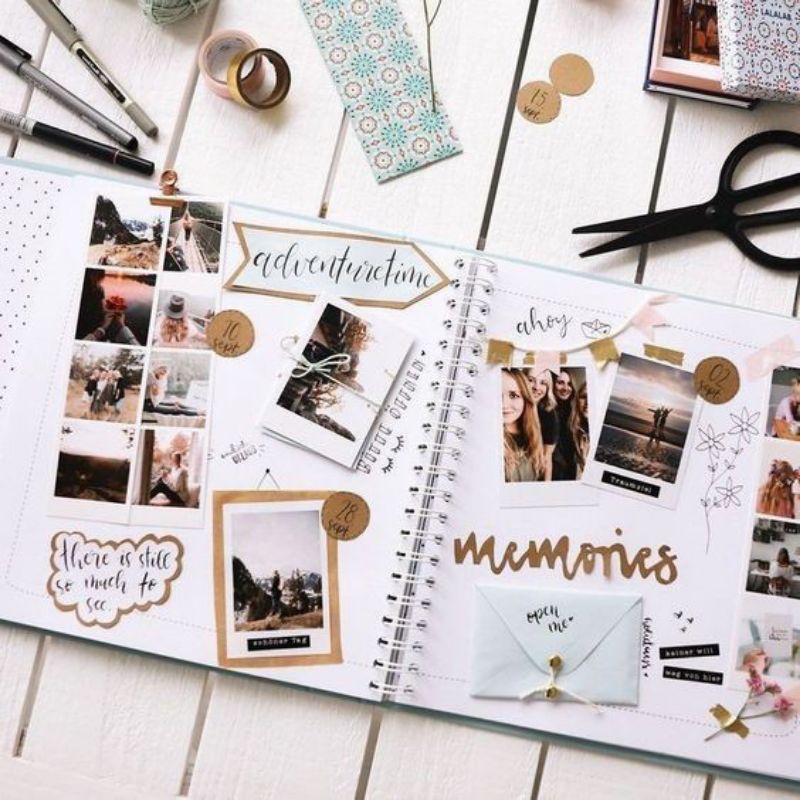 LALALAB
15
sept.
adventuretime
10
sept.
ahoy
02
sept.
Traumziel
28
sept.
there is still
so much to
see.
schöner Tag
memories
open
me
keiner will
weg von hier